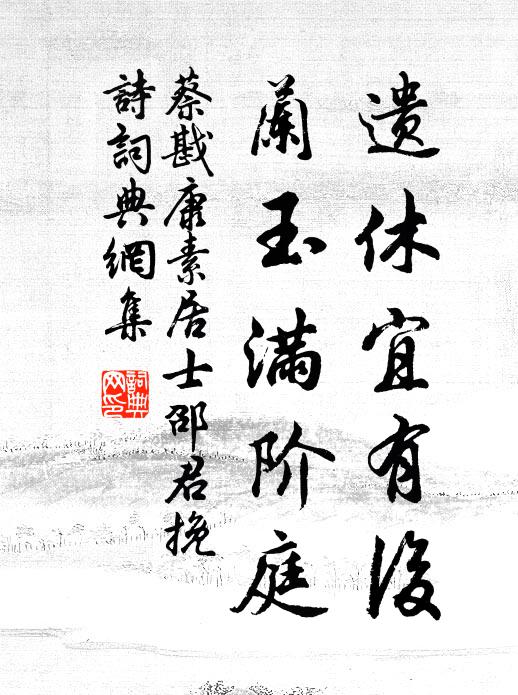 遗休宜有後
蘭玉满阶庭
蔡戡康素居士邵君挽
詩詞典網集
詞典网印